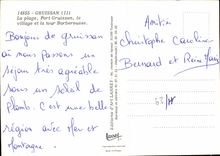 14855 - GRUISSAN (11)
La plage, Port Gruissan, le
village et la tour Barberousse.
Bonjour de gruissan
où nous passons un
séjour très agréable
sous un soleil de
plomb. C'est une belle
région avec Mer et
Montagne.
Amitié
Christophe Caroline
Bernard et